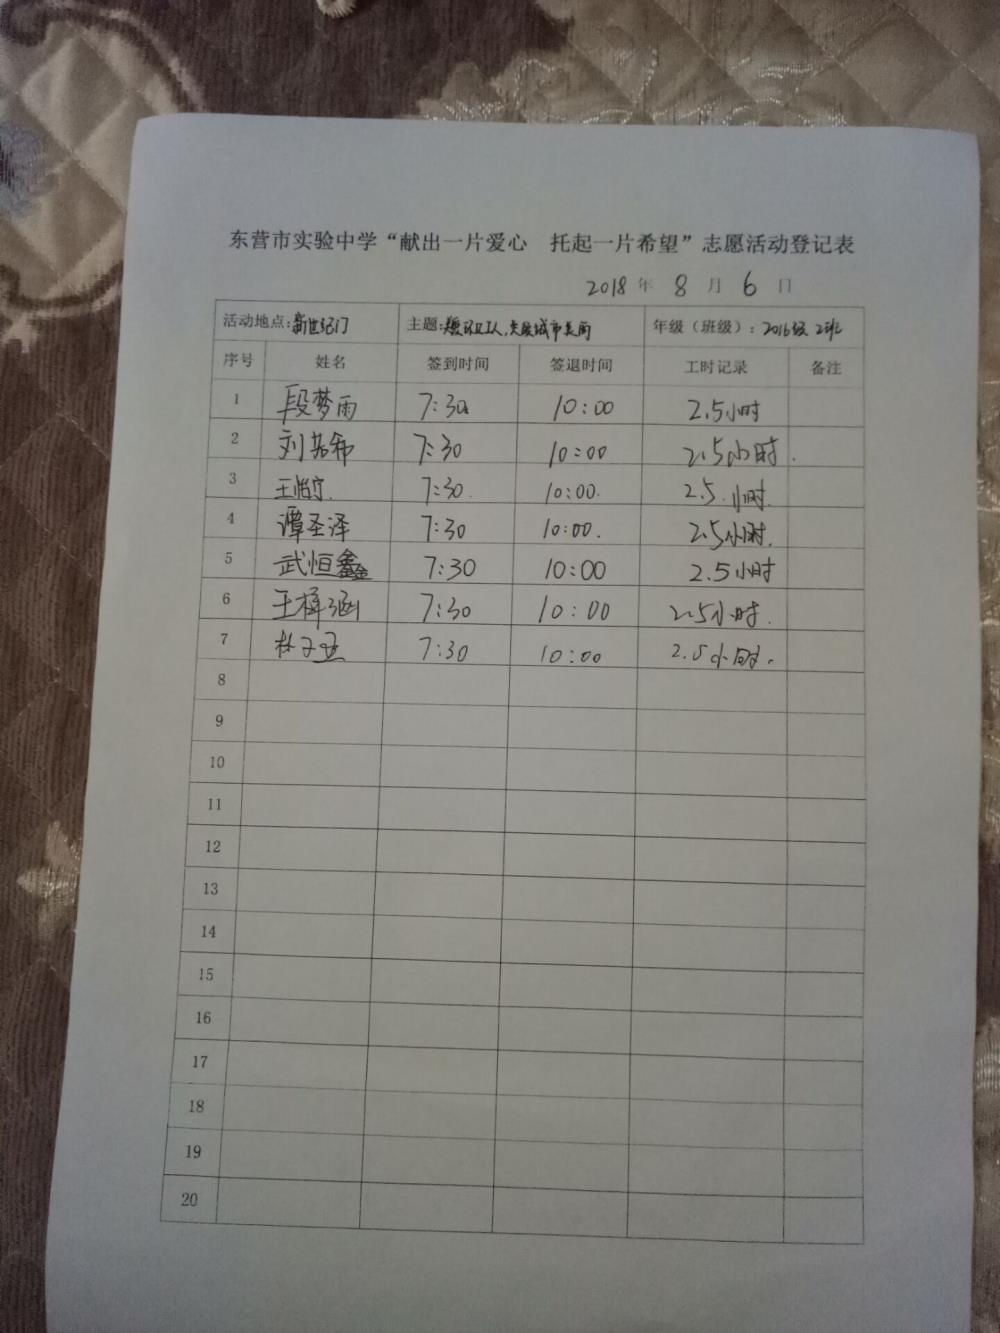 东营市实验中学“献出一片爱心 托起一片希望”志愿活动登记表
2018年 8月 6日
活动地点:新世纪门 主题: 环卫工人, 城市美丽 年级（班级）: 2016级 2班
序号 姓名 签到时间 签退时间 工时记录 备注
1 段梦雨 7:30 10:00 2.5小时
2 刘若希 7:30 10:00 2.5小时.
3 王怡宁. 7:30. 10:00. 2.5.小时.
4 谭圣泽 7:30 10:00. 2.5小时.
5 武恒鑫 7:30 10:00 2.5小时
6 王梓涵 7:30 10:00 2.5小时.
7 7:30 10:00 2.5小时.
8
9
10
11
12
13
14
15
16
17
18
19
20